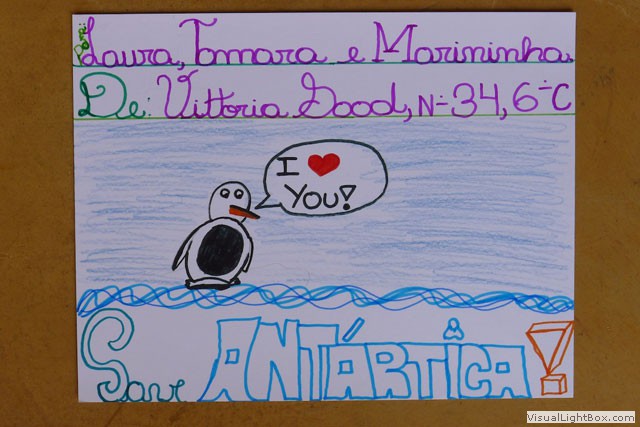 Para: Laura, Tamara e Marininha.
De: Vittoria Good, Nº 34, 6º C
I ❤ YOU!
Save ANTÁRTICA!
VisualLightBox.com